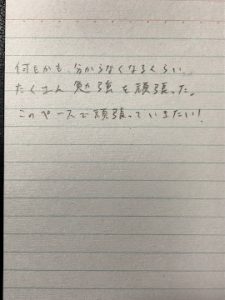 何もかも分からなくなるくらい
たくさん勉強を頑張った。
このペースで頑張っていきたい!